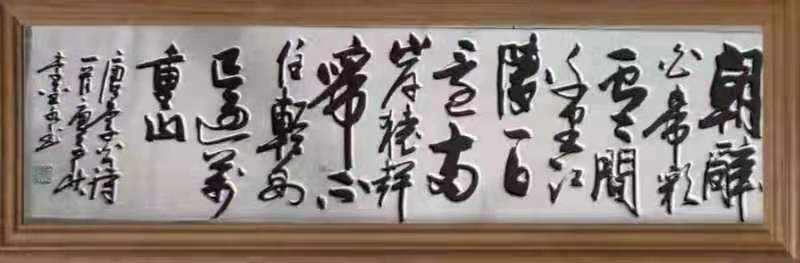 朝辭
白帝彩
雲間
千里江
陵一日
還兩
岸猿聲
啼不
住輕舟
已過萬
重山
唐李白詩
一首